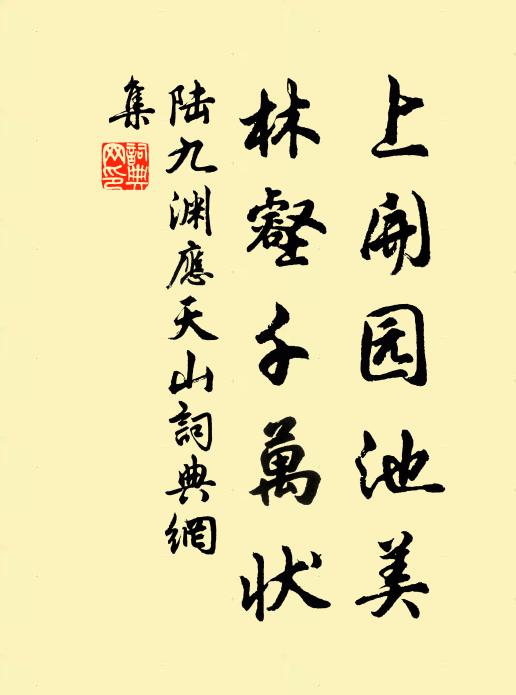 上开园池美
林壑千萬状
陆九渊應天山詞典網
集
詞典網印